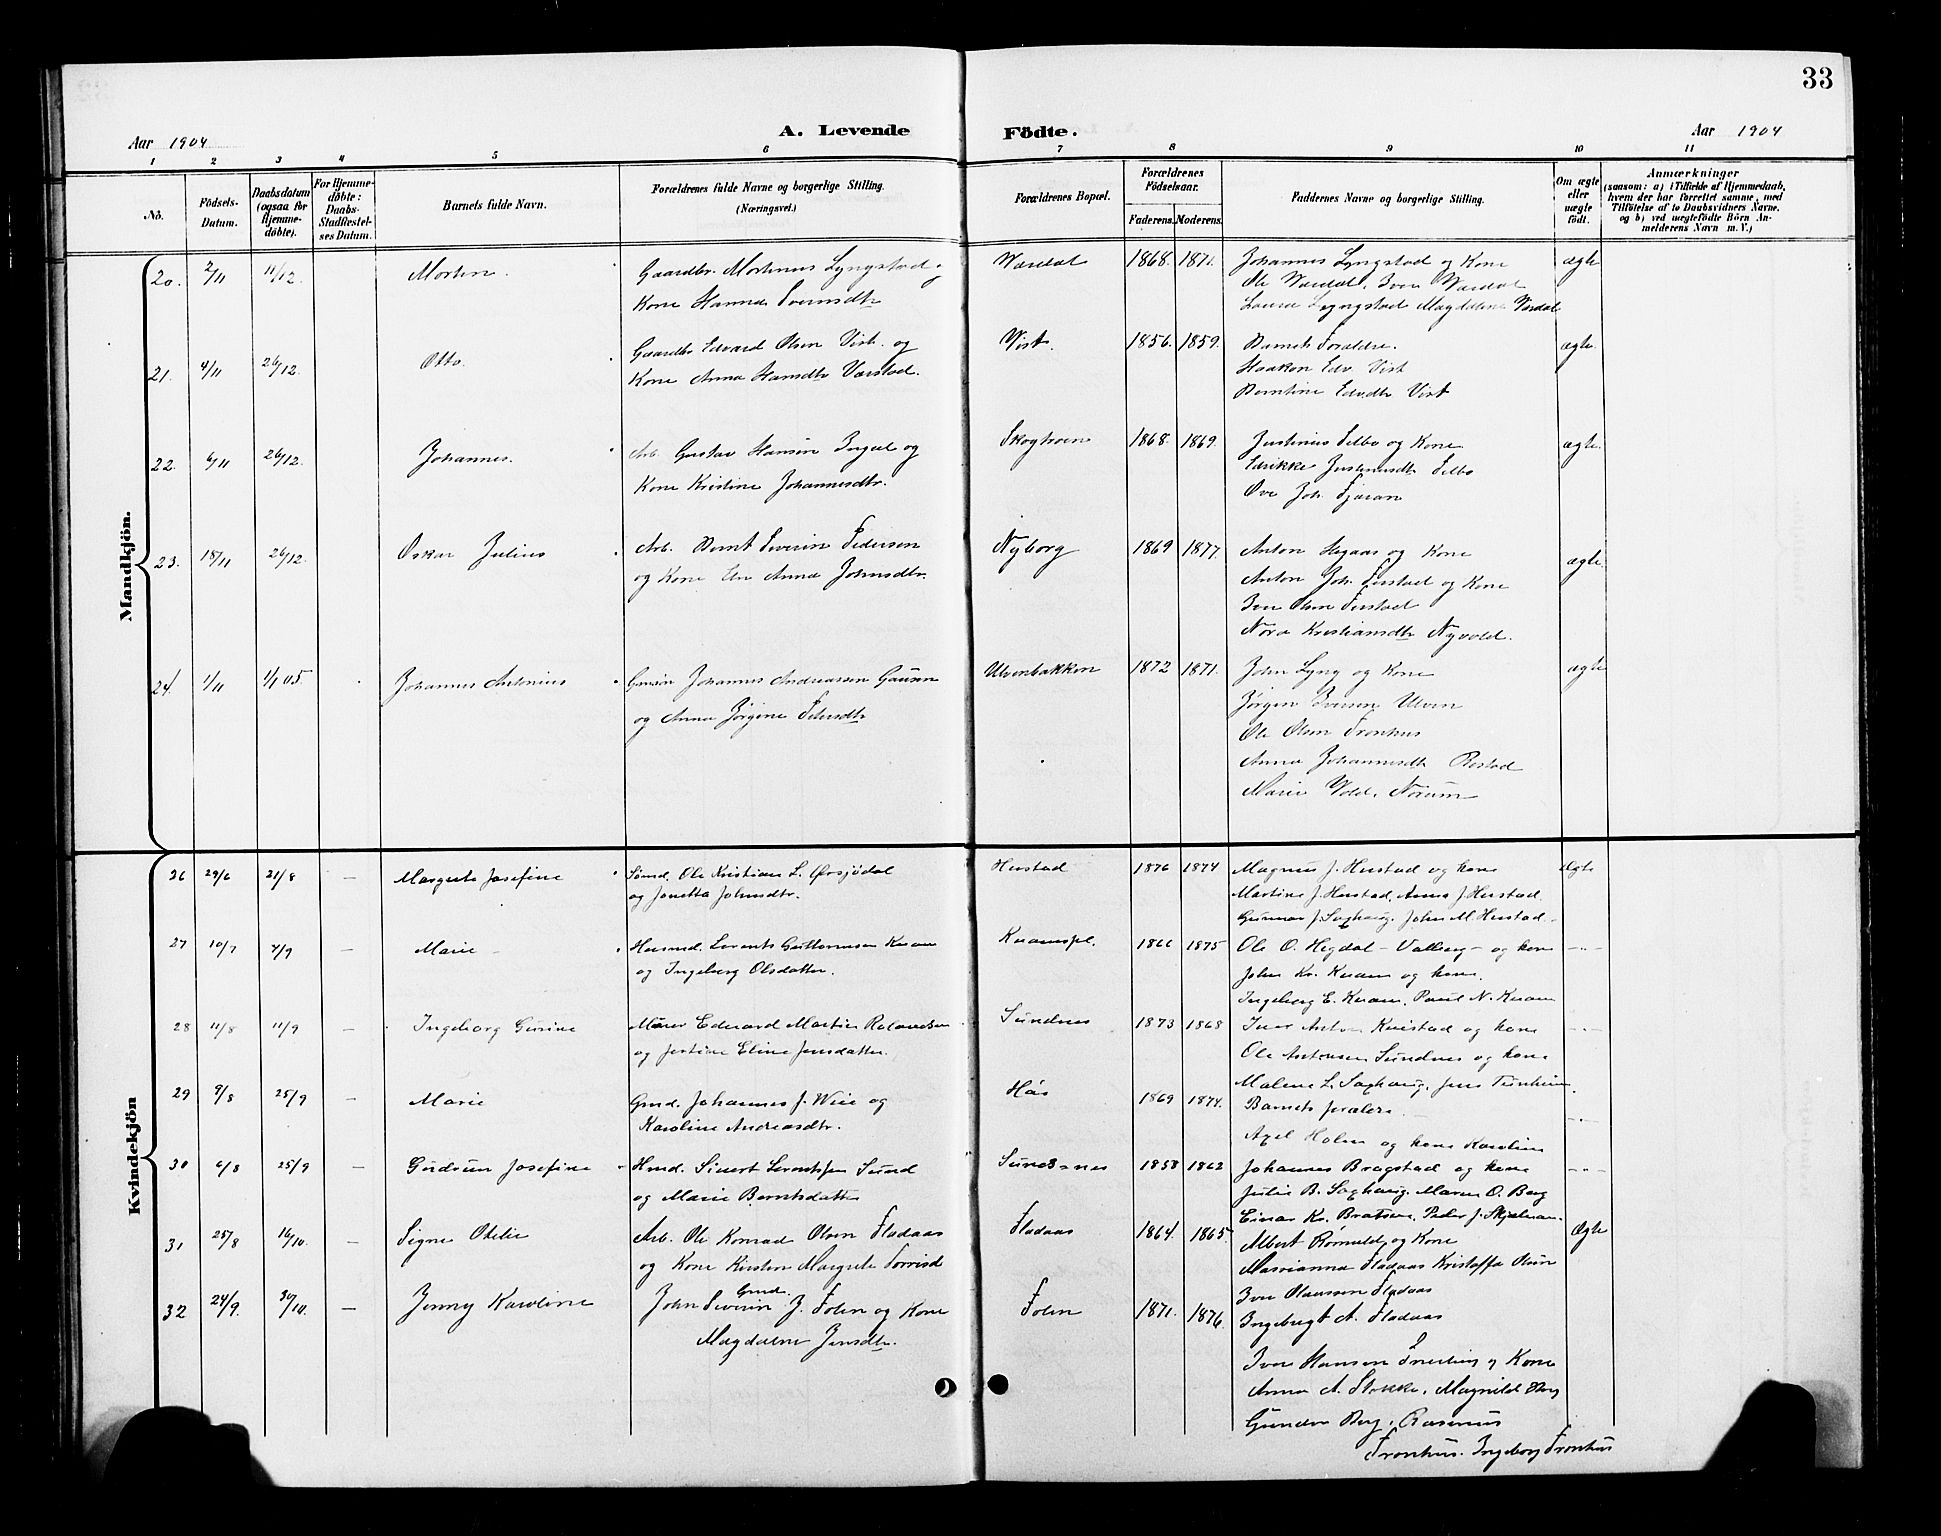 33
Aar 1904
A. Levende Födte.
Aar 1904
1 2 3 4 5 6 7 8 9 10 11
No.
Födsels-Datum.
Daabsdatum (ogsaa for Hjemmedöbte).
For Hjemmedöbte: Daabs-Stadfæstelses Datum.
Barnets fulde Navn.
Forældrenes fulde Navne og borgerlige Stilling. (Næringsvei.)
Forældrenes Bopæl.
Forældrenes Födselsaar.
Faderens. Moderens.
Faddernes Navne og borgerlige Stilling.
Om ægte eller uægte födt.
Anmærkninger
(saasom: a) i Tilfælde af Hjemmedaab, hvem der har forrettet samme, med Tilföielse af to Daabsvidners Navne, og b) ved uægtefödte Börn Anmelderens Navn m. V.)
Mandkjön.
20. 2/11 11/12 Morten. Gaardbr. Mortinus Lyngstad og
Kone Hanna Iversdtr
Værdal 1868. 1871. Johannes Lyngstad og Kone
Ole Værdal, Iver Værdal
Laura Lyngstad Magdalena Værdal
ægte
21. 4/11 26/12. Otto. Gaardbr Edvard Olsen Vist. og
Kone Anna Hansdtr Værstad.
Vist. 1856. 1859. Barnets Forældre.
Haakon Edv. Vist
Berntine Edv.dtr Vist
ægte.
22. 6/11 26/12. Johannes. Arb. Gustav Hansen Ingul og
Kone Kristine Johannesdtr.
1868. 1869. Justinus Selbo og Kone
Justinusdtr Selbo
Ove Joh.
ægte.
23. 18/11 26/12. Oskar Julius Arb. Bernt Severin Pedersen
og Kone Anna Johnsdtr.
Nyborg 1869 1877. Anton og Kone
Anton Joh. og Kone
Iver Olsen
Nora Kristiansdtr Nyvold.
ægte.
24. 1/11 1/1 05. Johannes Antonius Johannes Andreassen
og Anna Jørgine Petersdtr
Ulvenbakken 1872 1871. John Lyng og Kone
Jørgen Iversen Ulven
Ole Olsen Tronhus
Anna Johannesdtr Restad
Marie Vold. Norum
ægte
Kvindekjön
26 29/6 21/8 — Margrete Josefine Ole Kristian L. Ørsjödal
og Jonetta Johnsdtr.
Hustad 1876 1874 Magnus J. Hustad og kone
Martine J. Hustad, Anna J. Hustad.
Gunnar J. Saxhaug. John M. Hustad.
Ægte
27 10/7 4/9 — Marie — Husmd. Lorents Guttormsen Kvam
og Ingeborg Olsdatter.
Kvamspl. 1866 1875 Ole O. Hegdal - Valberg - og kone
John Kr. Kvam og kone.
Ingeborg E. Kvam, Paul N. Kvam
—"—
28 11/8 11/9 — Ingeborg Gurine Murer Edvard Martin Rolandsen
og Jostine Eline Jensdatter.
Sundnes 1873 1868 Iver Anton Kvistad og kone
Ole Antonsen Sundnes og kone
Malene L. Saxhaug.
—"—
29 9/8 25/9 — Marie Gmd. Johannes J. Weie og
Karoline Andreasdtr.
Hås 1869 1874. Barnets forældre.
Axel Holm og kone Karoline
—"—
30 6/8 25/9 — Gudrun Josefine Hmd. Sivert Lorentssen Sund
og Marie Berntsdatter
Sundsnes 1858 1862 Johannes Bragstad og kone
Julie B. Saxhaug. Maren O. Berg
Einar Kr. Bratsen, Peder J.
—"—
31 25/8 16/10. Signe Otelie Arb. Ole Konrad Olsen Fladaas
og Kone Kirsten Margrete
Fladaas 1864. 1865. Albert Rømuld og Kone
Marianna Fladaas Kristoffa Olsen
Iver Olaussen Fladaas
Ingeborgt A. Fladaas
Ægte
32 24/9. 30/10. — Jenny Karoline Gmd.
John Severin J. Folin og Kone
Magdalene Jensdtr.
Folin 1871. 1876. Iver Hansen og Kone
Anna A. Stokke. Magnild Berg
Gunder Berg. Rasmus
Tronhus. Ingeborg Tronhus